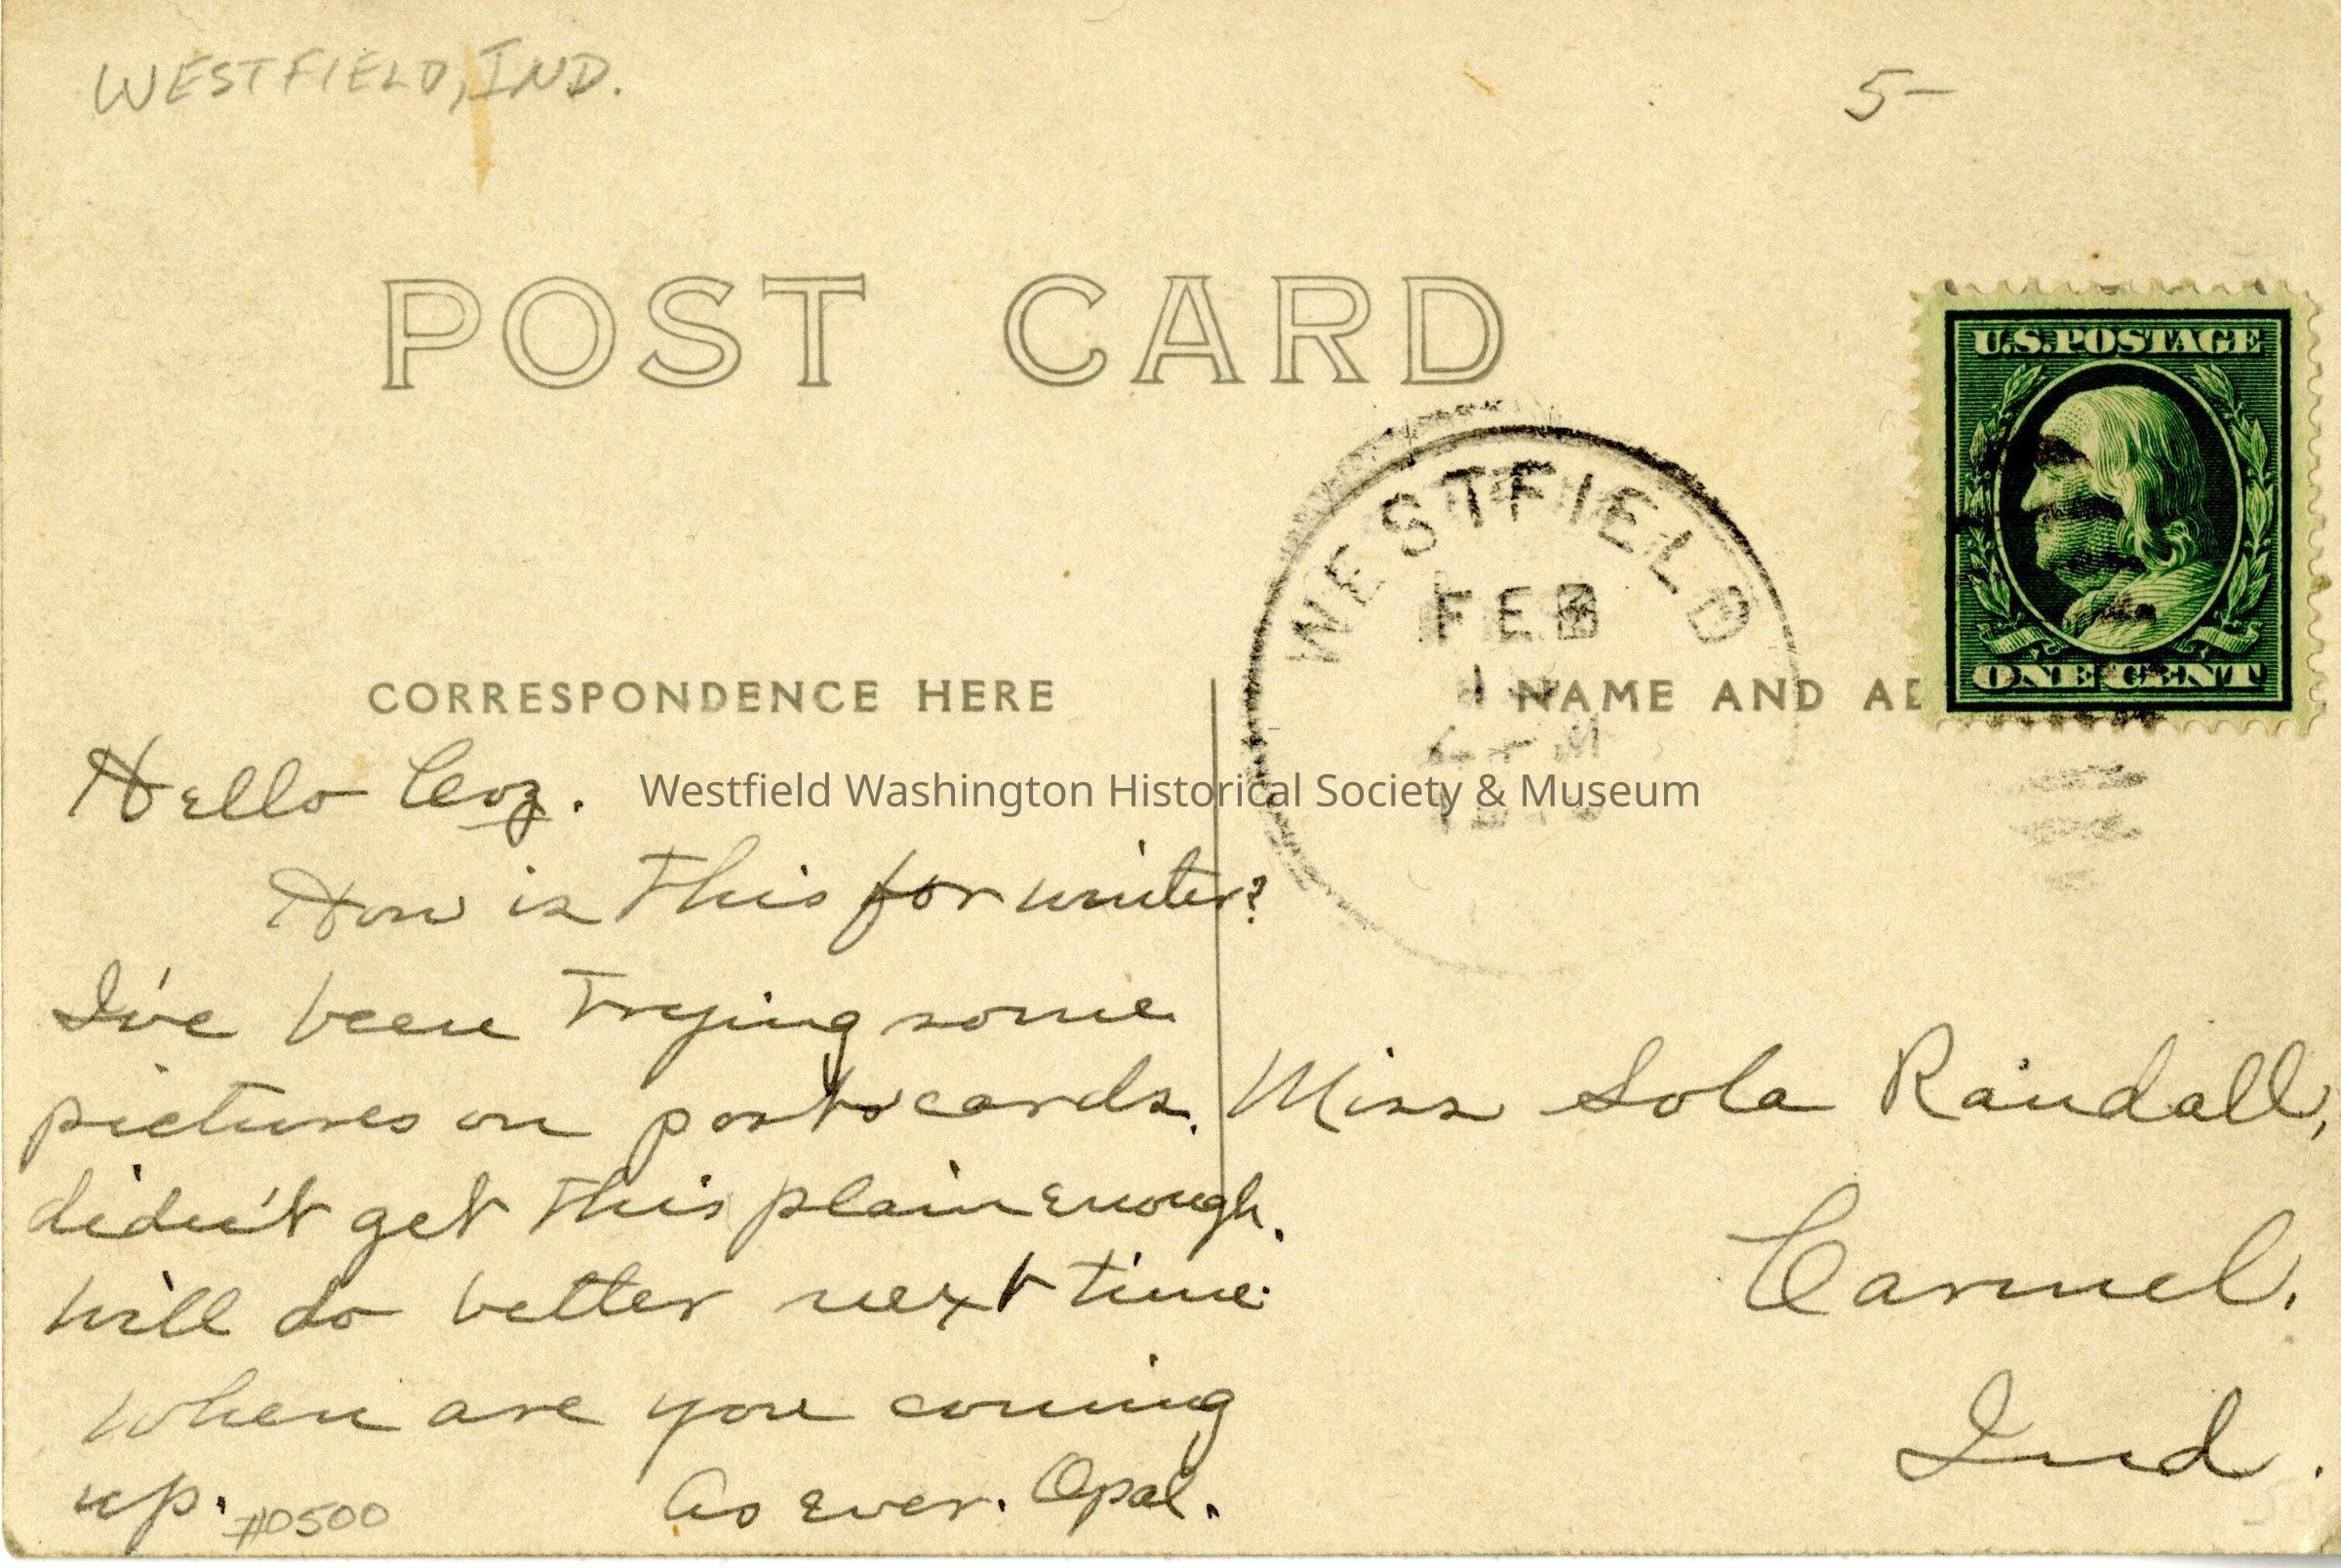 WESTFIELD, IND.
5-
POST CARD
U.S. POSTAGE
ONE CENT
WESTFIELD
FEB
1
CORRESPONDENCE HERE
NAME AND AD
Westfield Washington Historical Society & Museum
Hello Coz.
How is this for winter?
I've been trying some
pictures on post cards.
didn't get this plain enough.
will do better next time.
When are you coming
up. #0500
As ever. Opal.
Miss Lola Randall,
Carmel.
Ind.